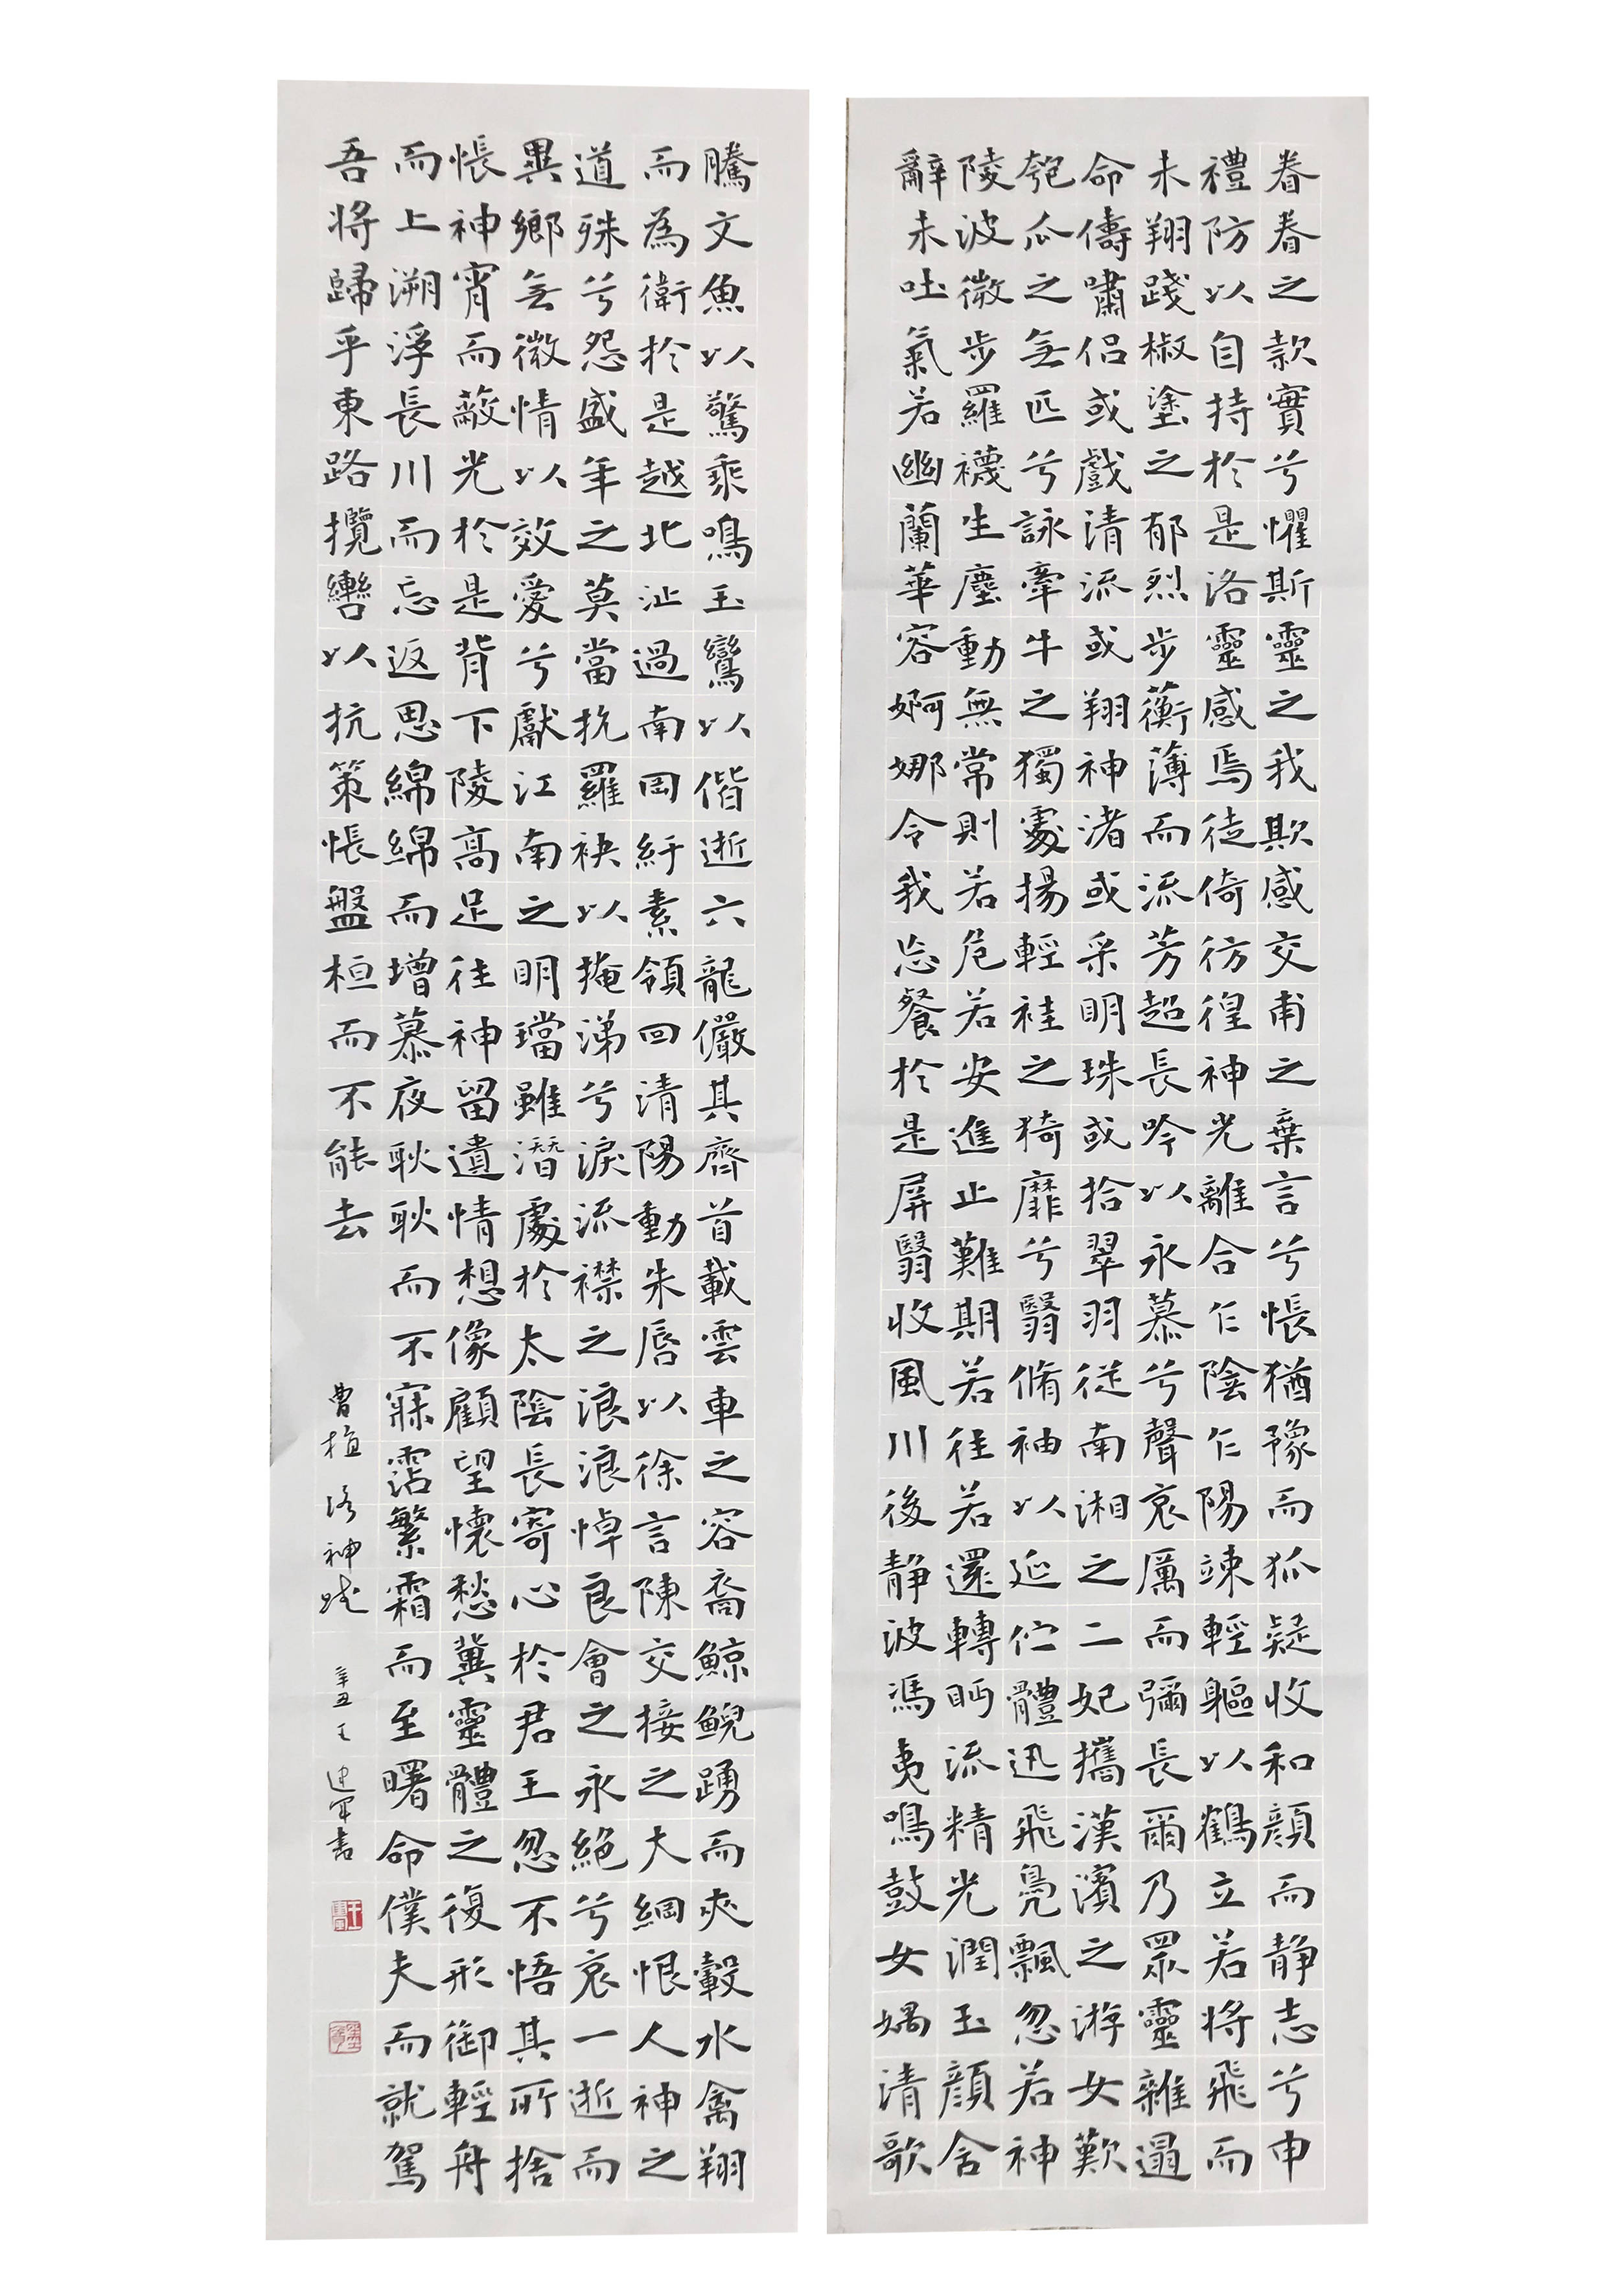 眷眷之款實兮懼斯靈之我欺感交甫之棄言兮悵猶豫而狐疑收和顏而静志兮申
禮防以自持於是洛靈感焉徙倚彷徨神光離合乍陰乍陽竦輕軀以鶴立若將飛而
未翔踐椒塗之郁烈步蘅薄而流芳超長吟以永慕兮聲哀厲而彌長爾乃眾靈雜遝
命儔嘯侶或戲清流或翔神渚或采明珠或拾翠羽從南湘之二妃攜漢濱之游女歎
匏瓜之无匹兮詠牽牛之獨處揚輕袿之猗靡兮翳脩袖以延佇體迅飛鳧飄忽若神
陵波微步羅襪生塵動無常則若危若安進止難期若往若還轉眄流精光潤玉顏含
辭未吐氣若幽蘭華容婀娜令我忘餐於是屏翳收風川後静波馮夷鳴鼓女媧清歌
騰文魚以驚乘鳴玉鸞以偕逝六龍儼其齊首載雲車之容裔鯨鯢踴而夾轂水禽翔
而為衛於是越北沚過南岡紆素領回清陽動朱唇以徐言陳交接之大綱恨人神之
道殊兮怨盛年之莫當抗羅袂以掩涕兮淚流襟之浪浪悼良會之永絕兮哀一逝而
異鄉无微情以效愛兮獻江南之明璫雖潛處於太陰長寄心於君王忽不悟其所捨
悵神宵而蔽光於是背下陵高足往神留遺情想像顧望懷愁冀靈體之復形御輕舟
而上溯浮長川而忘返思綿綿而增慕夜耿耿而不寐霑繁霜而至曙命僕夫而就駕
吾將歸乎東路攬轡以抗策悵盤桓而不能去
曹植洛神賦
辛丑王建軍書